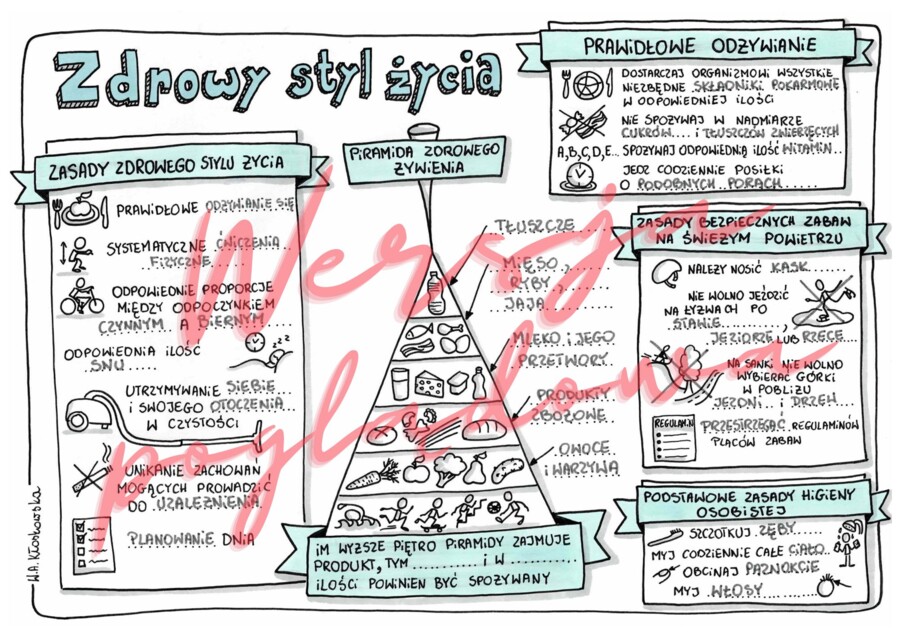 Zdrowy styl życia
ZASADY ZDROWEGO STYLU ŻYCIA
PRAWIDŁOWE ODŻYWIANIE SIĘ
SYSTEMATYCZNE ĆWICZENIA...
..FIZYCZNE.....
ODPOWIEDNIE PROPORCJE
MIĘDZY ODPOCZYNKIEM
CZYNNYM A BIERNYM......
ODPOWIEDNIA ILOŚĆ
..SNU.....
UTRZYMYWANIE SIEBIE...
i SWOJEGO OTOCZENIA..
W CZYSTOŚCI
UNIKANIE ZACHOWAŃ
MOGĄCYCH PROWADZIĆ
DO .UZALEŻNIENIA.
PLANOWANIE DNIA
W.A. Kłosłowska
PIRAMIDA ZDROWEGO
ŻYWIENIA
TŁUSZCZE.....
MIĘSO.,.....
RYBY,....
JAJA......
MLEKO i JEGO
PRZETWORY..
PRODUKTY..
ZBOŻOWE...
OWOCE..
i WARZYWA
iM WYŻSZE PIĘTRO PIRAMIDY ZAJMUJE
PRODUKT, TYM ............ i W ............
ILOŚCI POWINIEN BYĆ SPOŻYWANY
PRAWIDŁOWE ODŻYWIANIE
DOSTARCZAJ ORGANIZMOWI WSZYSTKIE
NIEZBĘDNE SKŁADNIKI POKARMOWE
W ODPOWIEDNIEJ ILOŚCI
NIE SPOŻYWAJ W NADMIARZE
CUKRÓW.... i TŁUSZCZÓW ZWIERZĘCYCH
A,B,C,D,E... SPOŻYWAJ ODPOWIEDNIĄ ILOŚĆ WITAMIN..
JEDZ CODZIENNIE POSIŁKI
O PODOBNYCH PORACH......
ZASADY BEZPIECZNYCH ZABAW
NA ŚWIEŻYM POWIETRZU
NALEŻY NOSIĆ KASK.......
NIE WOLNO JEŹDZIĆ
NA ŁYŻWACH PO
STAWIE.......,
JEZIORZE, LUB RZECE....
NA SANKI NIE WOLNO
WYBIERAĆ GÓRKI
W POBLIŻU
JEZDNI... i DRZEW...
REGULAMIN
PRZESTRZEGAĆ REGULAMINÓW
PLACÓW ZABAW
PODSTAWOWE ZASADY HIGIENY
OSOBISTEJ
SZCZOTKUJ ZĘBY..
MYJ CODZIENNIE CAŁE CIAŁO..
OBCINAJ PAZNOKCIE
MYJ .WŁOSY......
Wersja
poglądowa